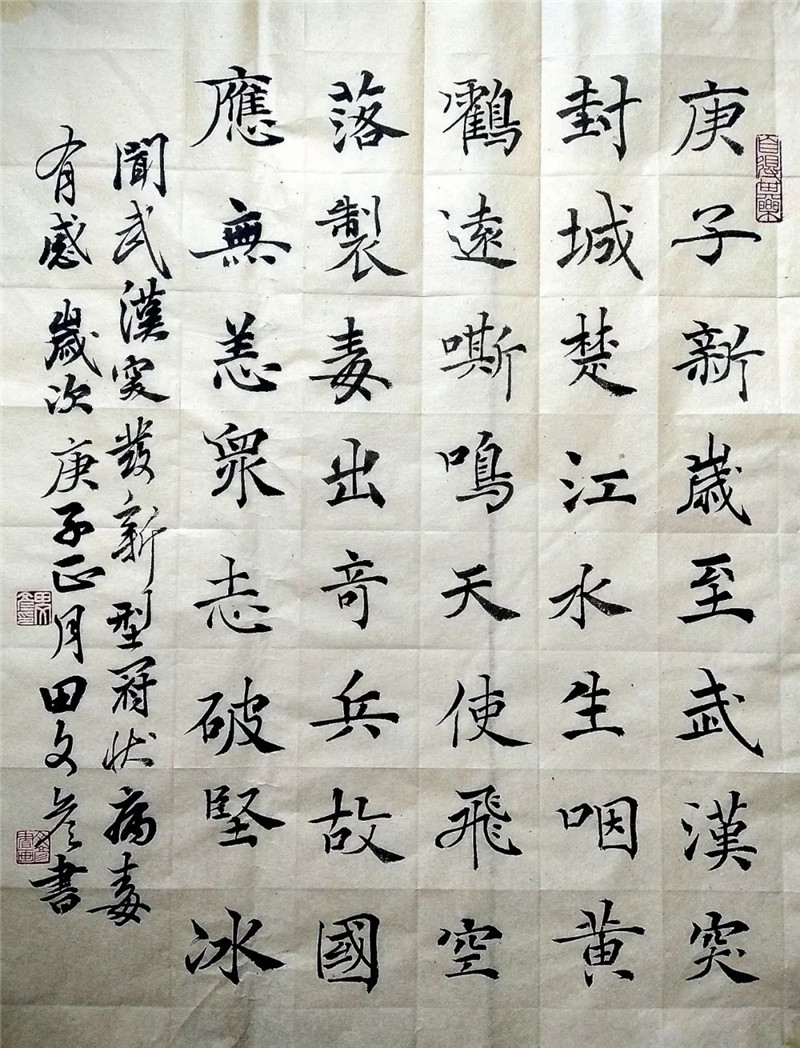 庚子新歲至武漢突
封城楚江水生咽黃
鸖遠嘶鳴天使飛空
落製毒出奇兵故國
應無恙衆志破堅冰
聞武漢突發新型冠狀病毒
有感歲次庚子正月田文彦書